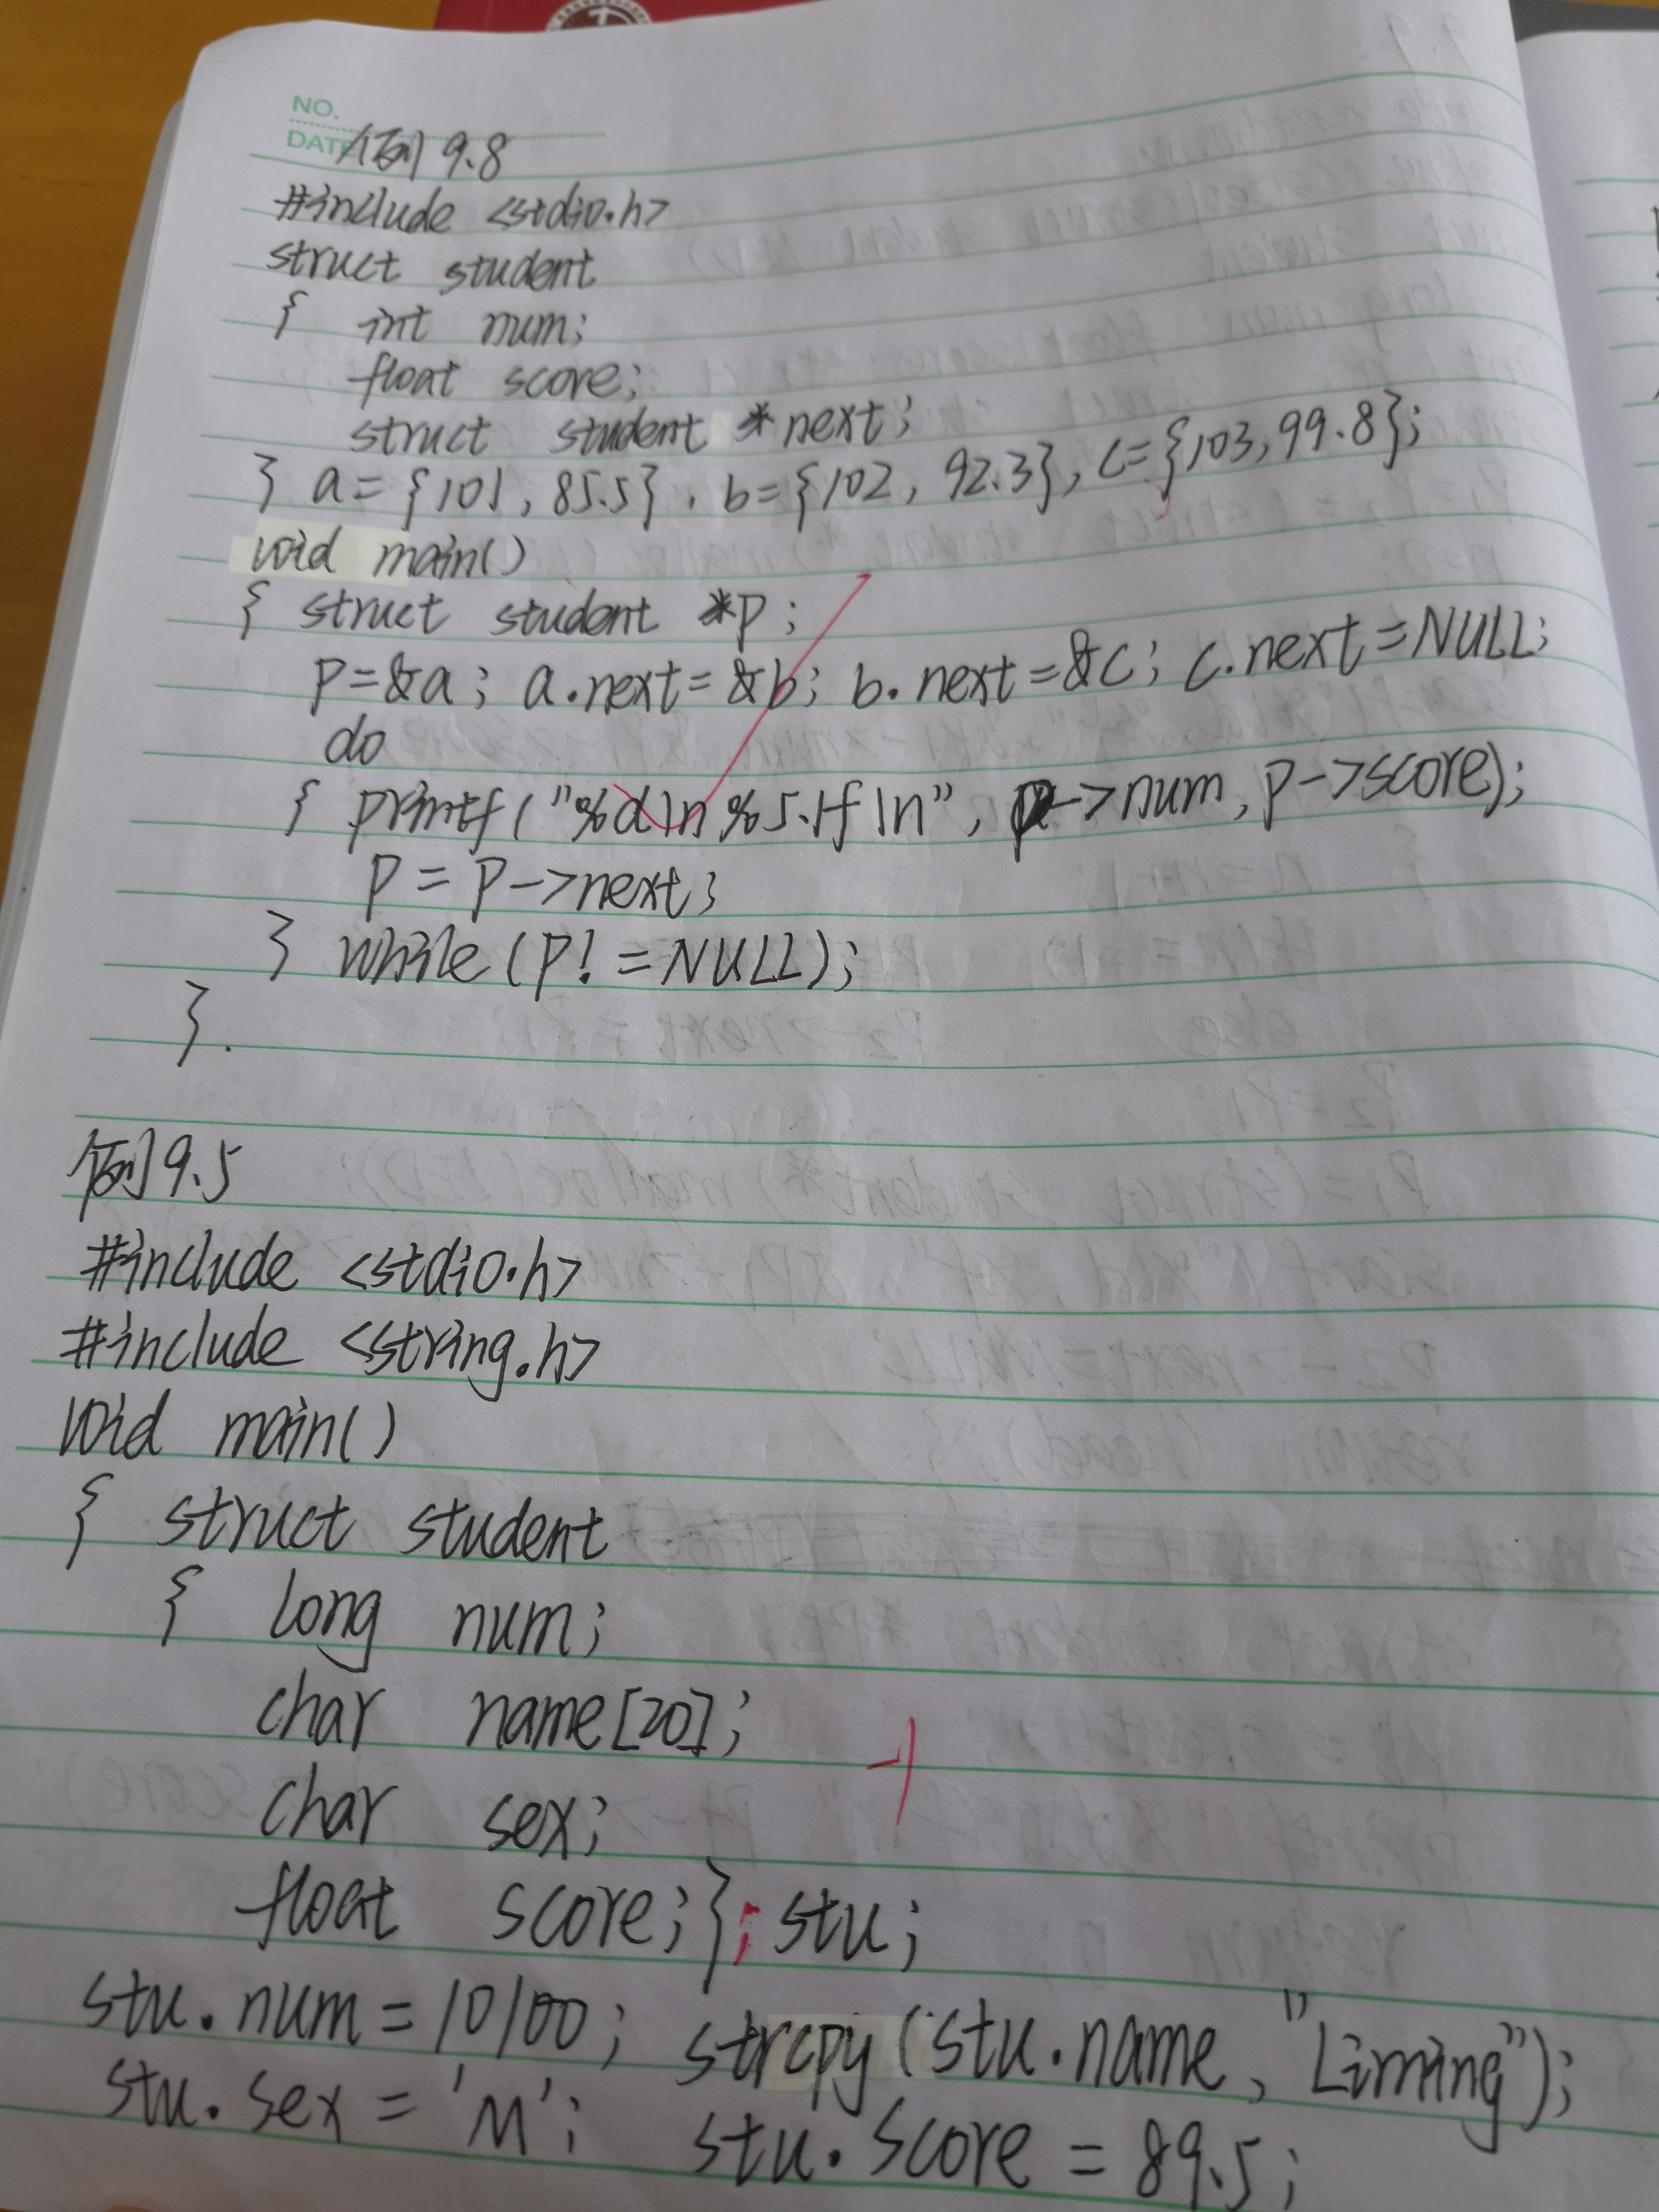 NO.
DATE
例9.8
#include <stdio.h>
struct student
{ int num;
float score;
struct student *next;
} a={101,85.5}, b={102, 92.3}, c={103,99.8};
void main()
{ struct student *p;
p=&a; a.next=&b; b.next=&c; c.next=NULL;
do
{ printf("%d\n%5.1f\n", p->num, p->score);
p = p->next;
} while(p!=NULL);
}.
例9.5
#include <stdio.h>
#include <string.h>
void main()
{ struct student
{ long num;
char name[20];
char sex;
float score;}; stu;
stu.num=10100; strcpy(stu.name,"Liming");
stu.sex='M'; stu.score=89.5;